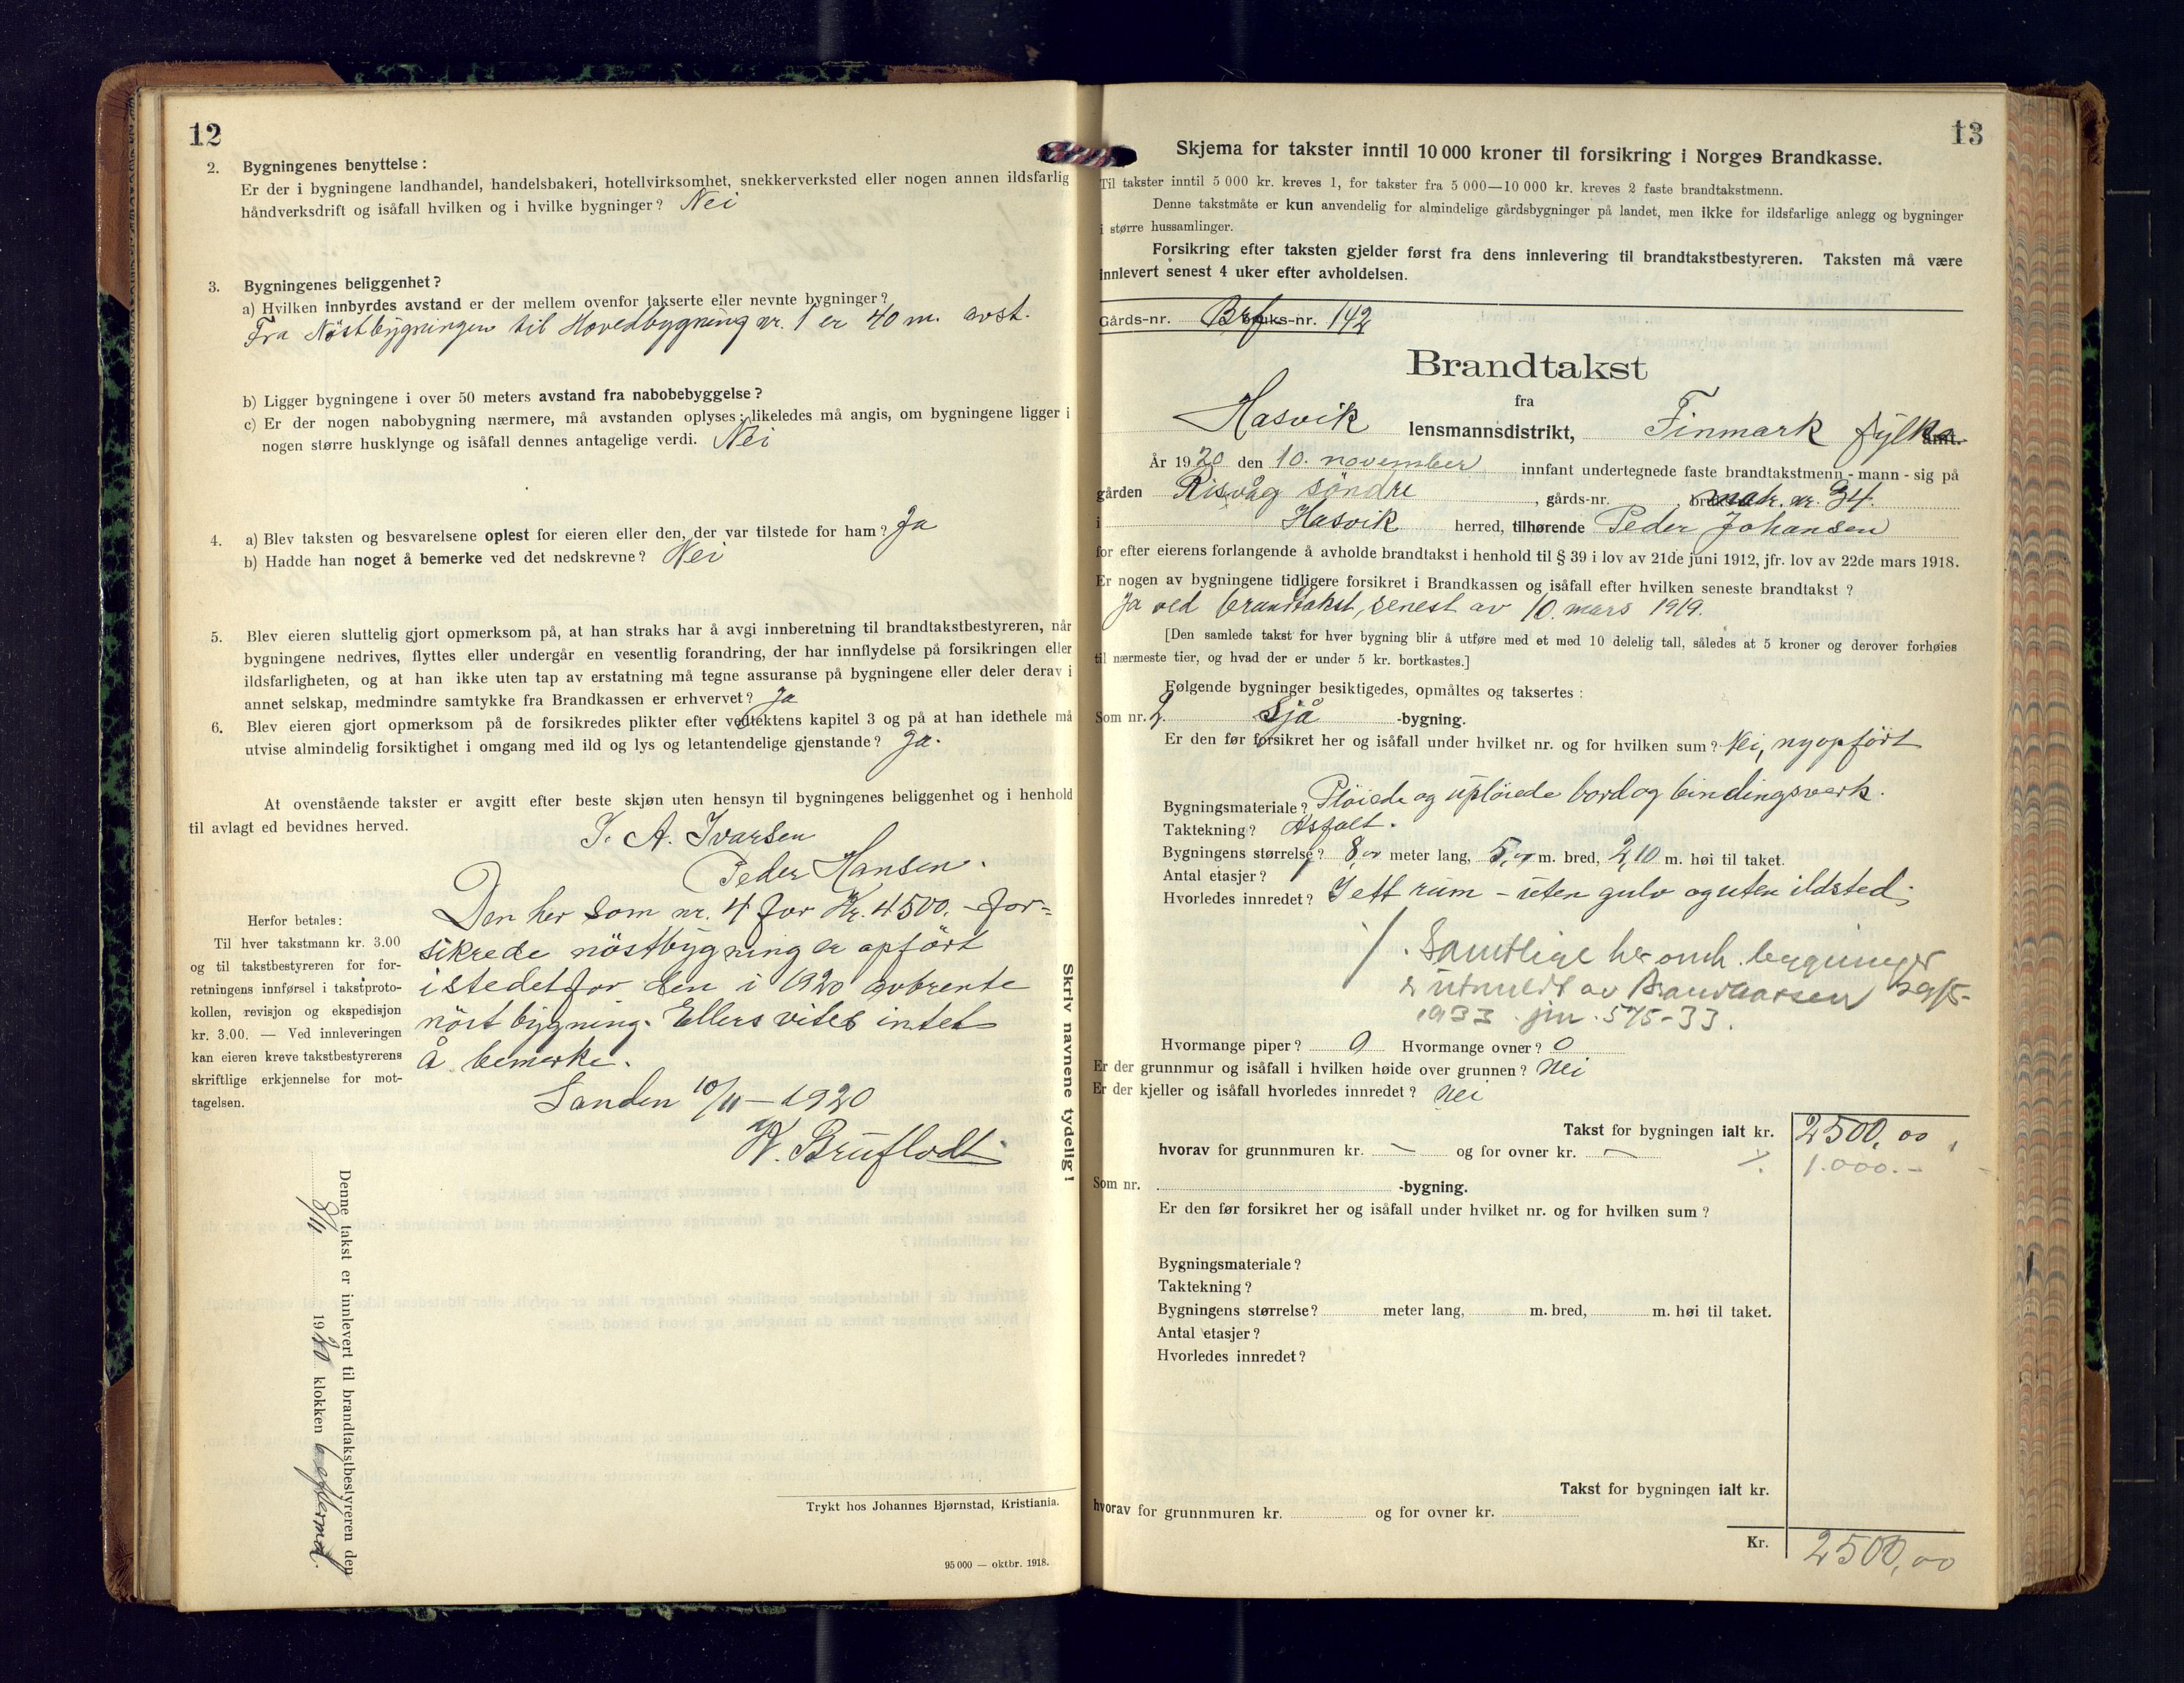 12
2. Bygningenes benyttelse:
Er der i bygningene landhandel, handelsbakeri, hotellvirksomhet, snekkerverksted eller nogen annen ildsfarlig
håndverksdrift og isåfall hvilken og i hvilke bygninger? Nei
3. Bygningenes beliggenhet?
a) Hvilken innbyrdes avstand er der mellem ovenfor takserte eller nevnte bygninger?
Fra Nöstbygningen til Hovedbygning nr. 1 er 40 m. avst.
b) Ligger bygningene i over 50 meters avstand fra nabobebyggelse?
c) Er der nogen nabobygning nærmere, må avstanden oplyses; likeledes må angis, om bygningene ligger i
nogen større husklynge og isåfall dennes antagelige verdi. Nei
4. a) Blev taksten og besvarelsene oplest for eieren eller den, der var tilstede for ham? Ja
b) Hadde han noget å bemerke ved det nedskrevne? Nei
5. Blev eieren sluttelig gjort opmerksom på, at han straks har å avgi innberetning til brandtakstbestyreren, når
bygningene nedrives, flyttes eller undergår en vesentlig forandring, der har innflydelse på forsikringen eller
ildsfarligheten, og at han ikke uten tap av erstatning må tegne assuranse på bygningene eller deler derav i
annet selskap, medmindre samtykke fra Brandkassen er erhvervet? Ja
6. Blev eieren gjort opmerksom på de forsikredes plikter efter vedtektens kapitel 3 og på at han idethele må
utvise almindelig forsiktighet i omgang med ild og lys og letantendelige gjenstande? Ja.
At ovenstående takster er avgitt efter beste skjøn uten hensyn til bygningenes beliggenhet og i henhold
til avlagt ed bevidnes herved.
J. A. Ivarsen
Peder Hansen.
Den her som nr. 4 for Kr. 4500.- for=
sikrede nöstbygning er opfört
istedetfor den i 1920 avbrente
nöstbygning. Ellers vites intet
å bemerke.
Sanden 10/11-1920
K. Bruflodt
Herfor betales:
Til hver takstmann kr. 3.00
og til takstbestyreren for for-
retningens innførsel i takstproto-
kollen, revisjon og ekspedisjon
kr. 3.00. — Ved innleveringen
kan eieren kreve takstbestyrerens
skriftlige erkjennelse for mot-
tagelsen.
Skriv navnene tydelig!
Denne takst er innlevert til brandtakstbestyreren den
/11 1920 klokken 6 eftermd.
Trykt hos Johannes Bjørnstad, Kristiania.
95 000 — oktbr. 1918.
13
Skjema for takster inntil 10 000 kroner til forsikring i Norges Brandkasse.
Til takster inntil 5 000 kr. kreves 1, for takster fra 5 000—10 000 kr. kreves 2 faste brandtakstmenn.
Denne takstmåte er kun anvendelig for almindelige gårdsbygninger på landet, men ikke for ildsfarlige anlegg og bygninger
i større hussamlinger.
Forsikring efter taksten gjelder først fra dens innlevering til brandtakstbestyreren. Taksten må være
innlevert senest 4 uker efter avholdelsen.
Gårds-nr. Brf bruks-nr. 142
Brandtakst
fra
Hasvik lensmannsdistrikt, Finmark fylke amt.
År 1920 den 10. november innfant undertegnede faste brandtakstmenn - mann - sig på
gården Risvåg söndre, gårds-nr. , bruks matr. nr. 34.
i Hasvik herred, tilhørende Peder Johansen
for efter eierens forlangende å avholde brandtakst i henhold til § 39 i lov av 21de juni 1912, jfr. lov av 22de mars 1918.
Er nogen av bygningene tidligere forsikret i Brandkassen og isåfall efter hvilken seneste brandtakst?
Ja ved brandtakst, senest av 10. mars 1919.
[Den samlede takst for hver bygning blir å utføre med et med 10 delelig tall, således at 5 kroner og derover forhøies
til nærmeste tier, og hvad der er under 5 kr. bortkastes.]
Følgende bygninger besiktigedes, opmåltes og taksertes:
Som nr. 2 Sjå -bygning.
Er den før forsikret her og isåfall under hvilket nr. og for hvilken sum? Nei, nyopfört
Bygningsmateriale? Plöiede og uplöiede bord og bindingsverk.
Taktekning? Asfalt.
Bygningens størrelse? 8,00 meter lang, 5,00 m. bred, 2,10 m. høi til taket.
Antal etasjer? 1
Hvorledes innredet? I ett rum - uten gulv og uten ildsted.
Samtlige her omh. bygninger
er utmeldt av Brandkassen 29/5-
1933 jnr. 575-33.
Hvormange piper? 0 Hvormange ovner? 0
Er der grunnmur og isåfall i hvilken høide over grunnen? Nei
Er der kjeller og isåfall hvorledes innredet? Nei
Takst for bygningen ialt kr. 2500,00
hvorav for grunnmuren kr. — og for ovner kr. — 1.000.-
Som nr. -bygning.
Er den før forsikret her og isåfall under hvilket nr. og for hvilken sum?
Bygningsmateriale?
Taktekning?
Bygningens størrelse? meter lang, m. bred, m. høi til taket.
Antal etasjer?
Hvorledes innredet?
Takst for bygningen ialt kr.
hvorav for grunnmuren kr. og for ovner kr.
Kr. 2500,00